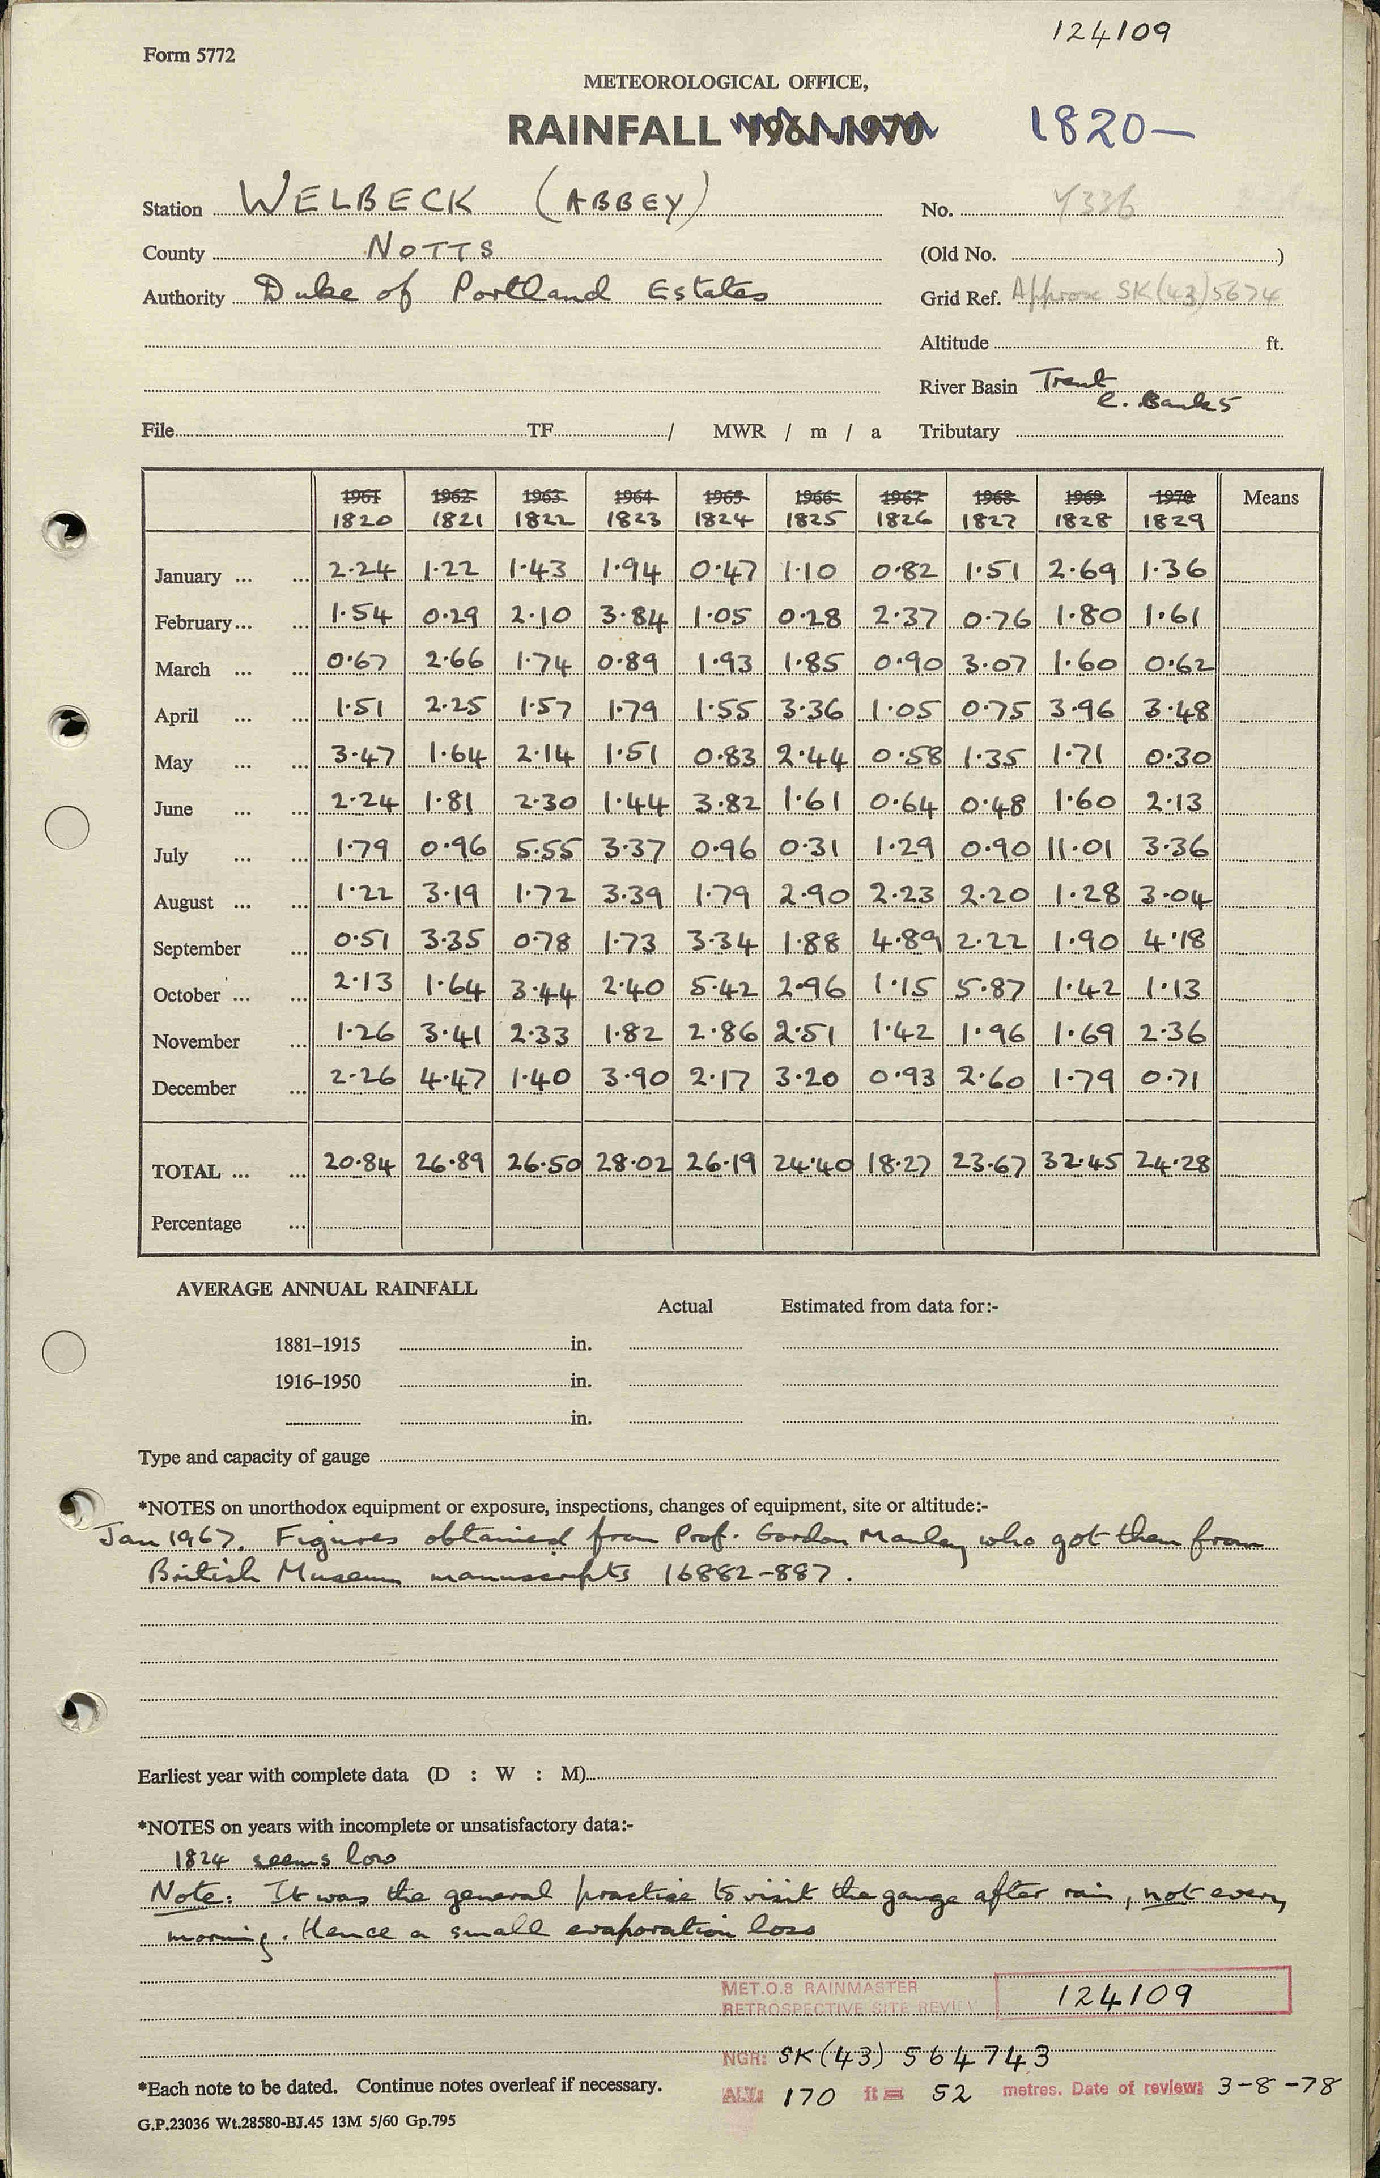 124109
Form 5772
METEOROLOGICAL OFFICE,
RAINFALL 1961-1970 1820—
Station WELBECK (ABBEY) No. Y336
County NOTTS (Old No. )
Authority Duke of Portland Estates Grid Ref. Approx SK(43)5674
Altitude ft.
River Basin Trent
C. Banks
File TF / MWR / m / a Tributary
1961 1962 1963 1964 1965 1966 1967 1968 1969 1970 Means
1820 1821 1822 1823 1824 1825 1826 1827 1828 1829
January ... ... 2·24 1·22 1·43 1·94 0·47 1·10 0·82 1·51 2·69 1·36
February ... ... 1·54 0·29 2·10 3·84 1·05 0·28 2·37 0·76 1·80 1·61
March ... ... 0·67 2·66 1·74 0·89 1·93 1·85 0·90 3·07 1·60 0·62
April ... ... 1·51 2·25 1·57 1·79 1·55 3·36 1·05 0·75 3·96 3·48
May ... ... 3·47 1·64 2·14 1·51 0·83 2·44 0·58 1·35 1·71 0·30
June ... ... 2·24 1·81 2·30 1·44 3·82 1·61 0·64 0·48 1·60 2·13
July ... ... 1·79 0·96 5·55 3·37 0·96 0·31 1·29 0·90 11·01 3·36
August ... ... 1·22 3·19 1·72 3·39 1·79 2·90 2·23 2·20 1·28 3·04
September ... 0·51 3·35 0·78 1·73 3·34 1·88 4·89 2·22 1·90 4·18
October ... ... 2·13 1·64 3·44 2·40 5·42 2·96 1·15 5·87 1·42 1·13
November ... 1·26 3·41 2·33 1·82 2·86 2·51 1·42 1·96 1·69 2·36
December ... 2·26 4·47 1·40 3·90 2·17 3·20 0·93 2·60 1·79 0·71
TOTAL ... ... 20·84 26·89 26·50 28·02 26·19 24·40 18·27 23·67 32·45 24·28
Percentage ...
AVERAGE ANNUAL RAINFALL
Actual Estimated from data for:-
1881–1915 in.
1916–1950 in.
in.
Type and capacity of gauge
*NOTES on unorthodox equipment or exposure, inspections, changes of equipment, site or altitude:-
Jan 1967. Figures obtained from Prof. Gordon Manley who got them from
British Museum manuscripts 16882-887.
Earliest year with complete data (D : W : M)
*NOTES on years with incomplete or unsatisfactory data:-
1824 seems low
Note: It was the general practise to visit the gauge after rain, not every
morning. Hence a small evaporation loss
MET.O.8 RAINMASTER
RETROSPECTIVE SITE REVIEW 124109
NGR: SK(43) 564743
*Each note to be dated. Continue notes overleaf if necessary.
ALT: 170 ft = 52 metres. Date of review: 3-8-78
G.P.23036 Wt.28580-BJ.45 13M 5/60 Gp.795